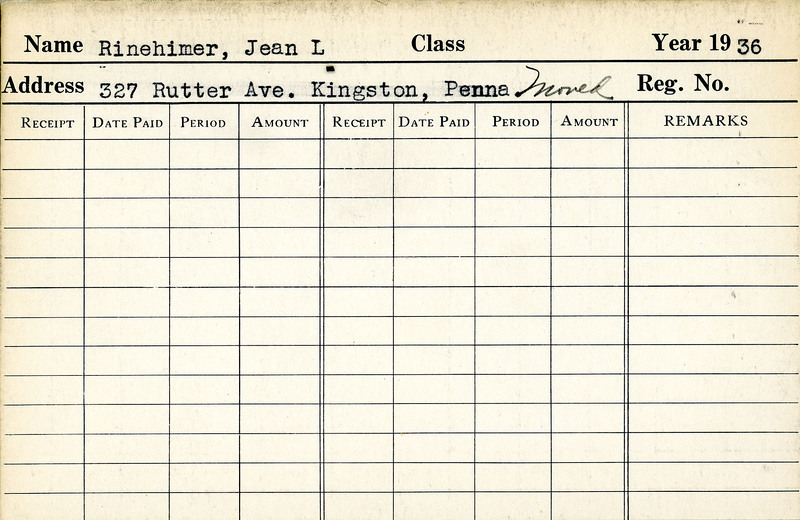 Name Rinehimer, Jean L Class Year 19 36
Address 327 Rutter Ave. Kingston, Penna Moved Reg. No.
RECEIPT DATE PAID PERIOD AMOUNT RECEIPT DATE PAID PERIOD AMOUNT REMARKS